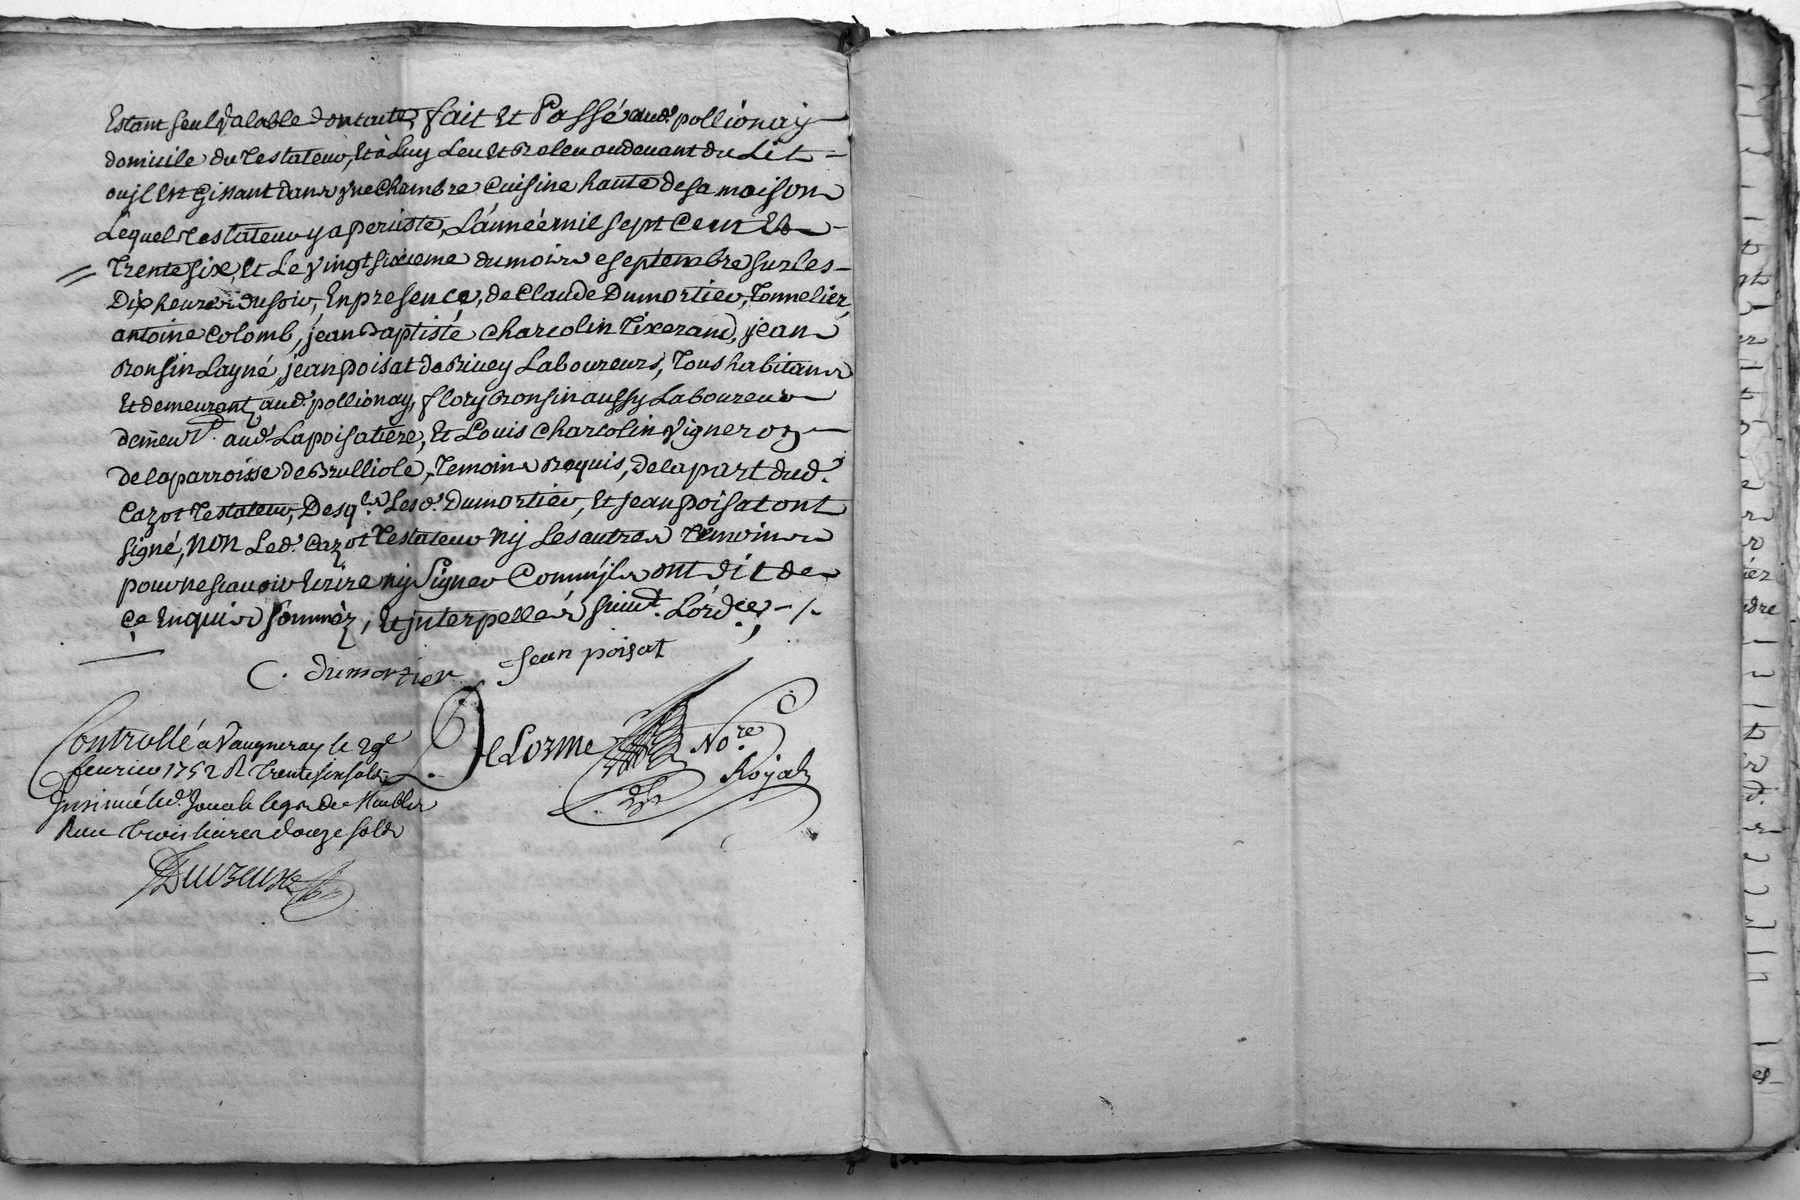 Estant seul valable dont acte, fait et Passé aud. pollionay
domicile du Testateur, et à Luy Leu et Releu audevant du Lit
ou jl est Gissant dans une Chambre Cuisine haute de sa maison
Lequel Testateur y a persisté, L'année mil sept Cent Et
Trente six, et Le vingt sixieme du mois de septembre sur les
Dix heures du soir, En presence, de Claude Dumortier, Tonnelier,
antoine Colomb, jean Baptiste Charcolin Tixerand, jean
Ronsin Layné, jean poisat de Rivey Laboureurs, Tous habitans
Et demeurant aud. pollionay, flory Ronsin aussy Laboureur
demeurt. aud. Lapoisatiere, Et Louis Charcolin Vigneron
de la parroisse de Brulliole, Temoins Requis, de la part dud.
Cazot Testateur, Desqls. Lesd. Dumortier, Et Jean poisat ont
signé, non Led. Cazot Testateur ny Les autres Temoins
pour ne scavoir Ecrire ny Signer Comm'jls ont dit de
Ce Enquis sommez, Et jnterpellés suivt. L'ordce. -/.
C. dumortier Jean poisat
DeLorme Nore. Royal
Controllé a Vaugneray le 29e
feurier 1752 R Trente six sols
Insinué led. Jour le legs de Meubles
Recu trois livres douze sols